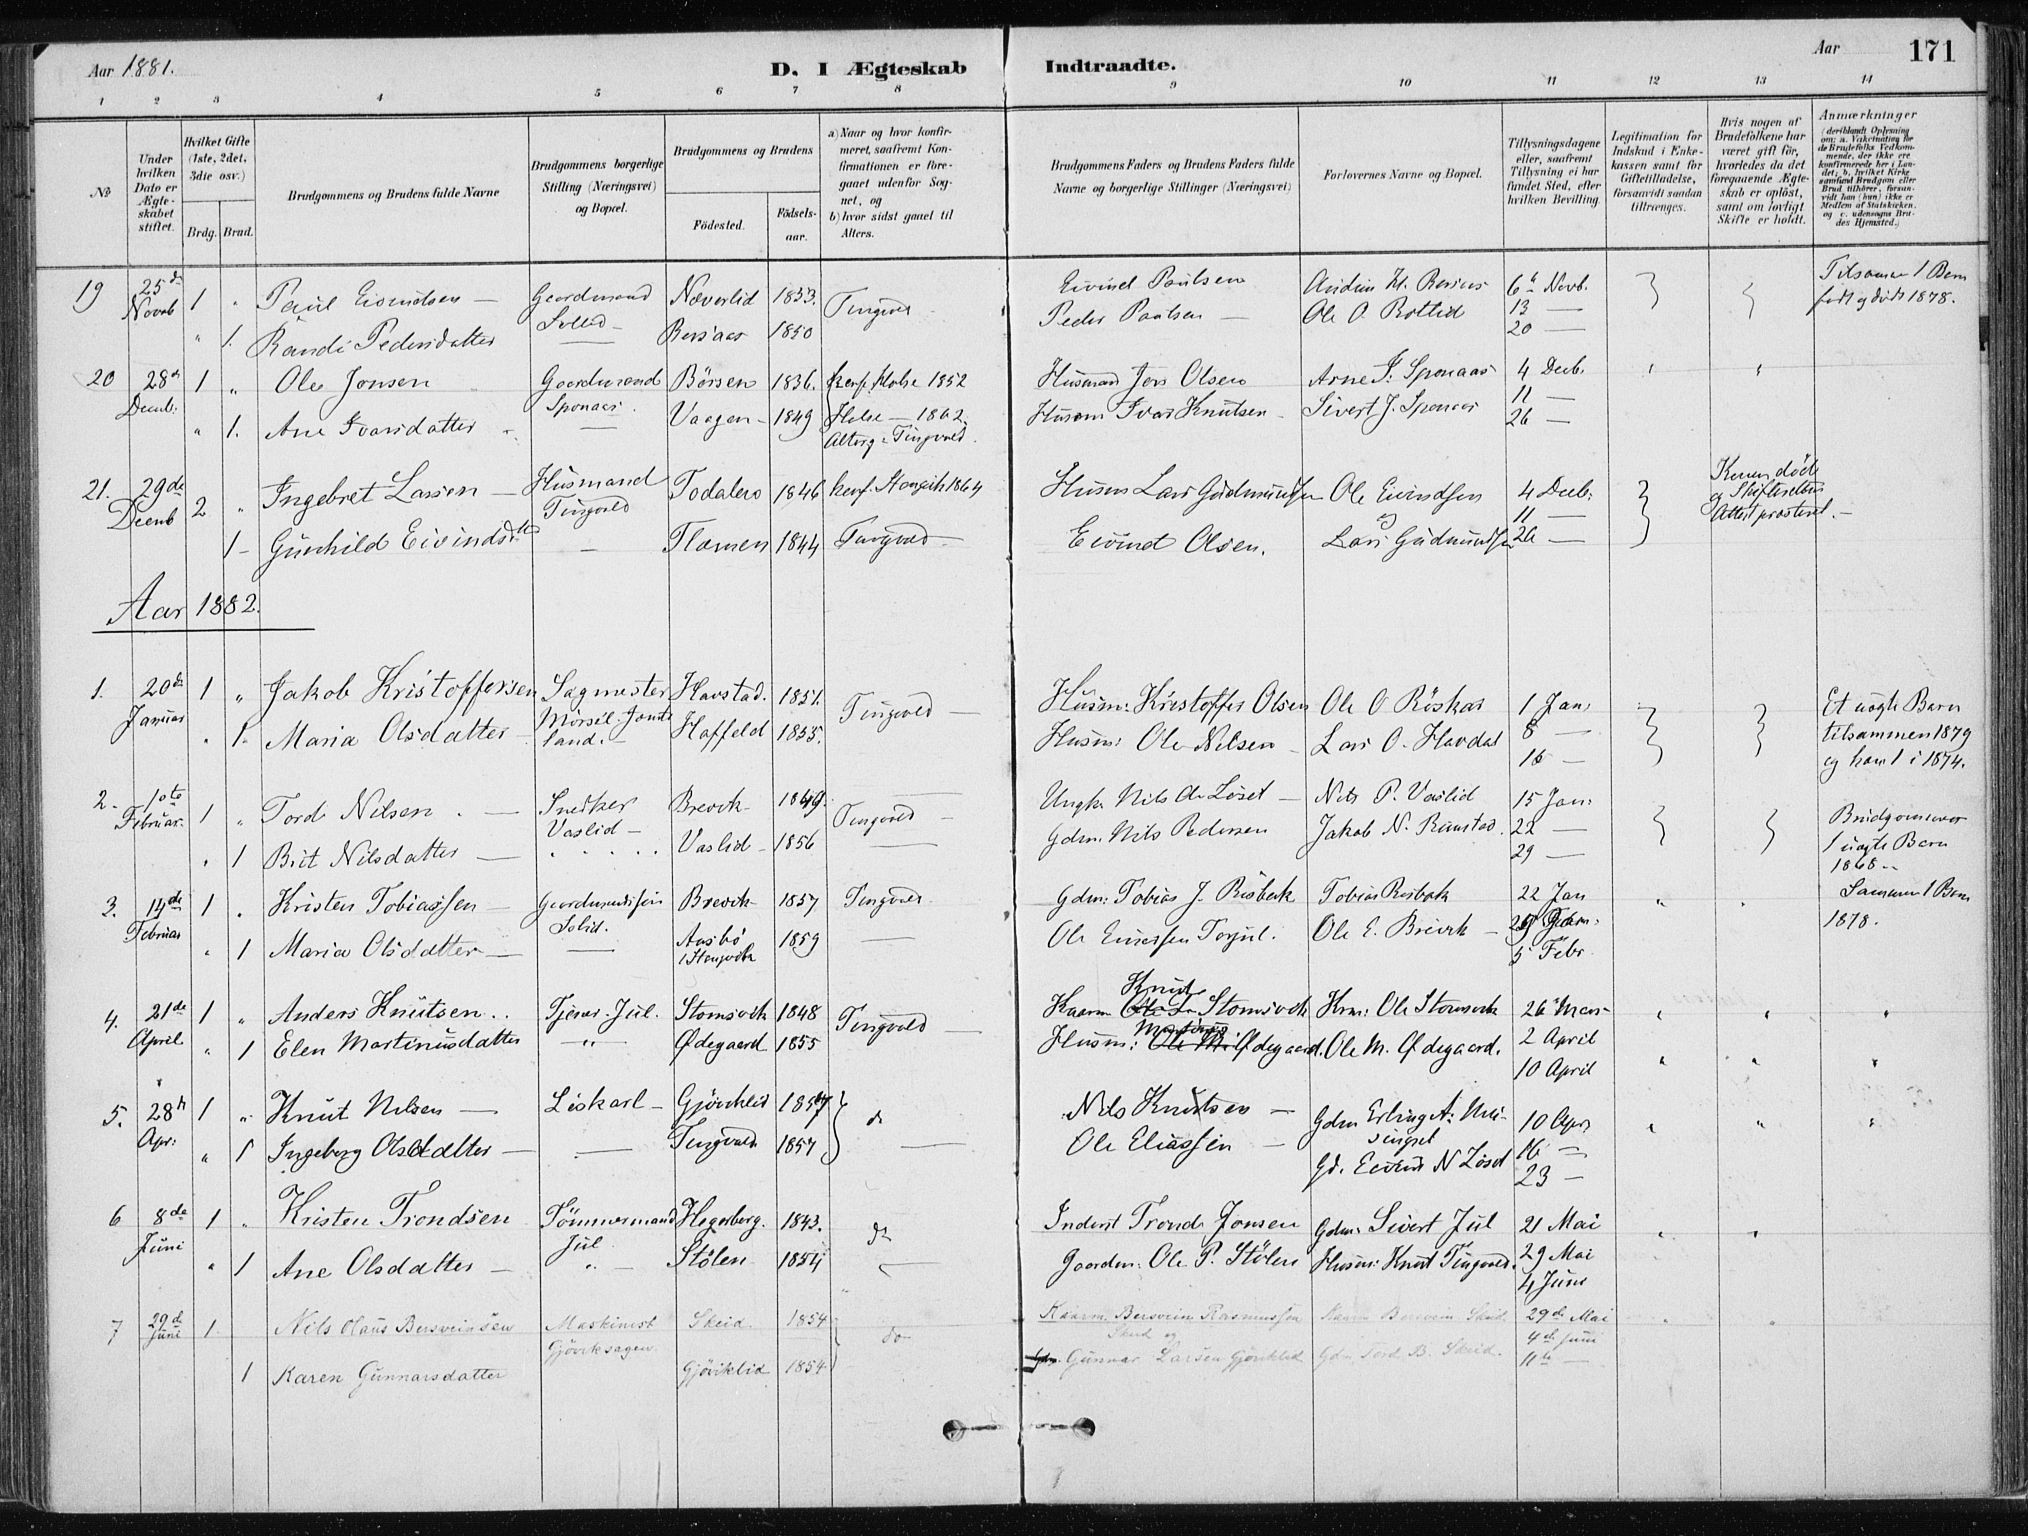 Aar 1881.
D. I Ægteskab Indtraadte.
Aar
171
1 2 3 4 5 6 7 8 9 10 11 12 13 14
No
Under hvilken Dato er Ægteskabet stiftet.
Hvilket Gifte (1ste, 2det, 3die osv.)
Brdg. Brud.
Brudgommens og Brudens fulde Navne
Brudgommens borgerlige Stilling (Næringsvei) og Bopæl.
Brudgommens og Brudens
Födested. Födselsaar.
a) Naar og hvor konfirmeret, saafremt Konfirmationen er foregaaet udenfor Sognet, og
b) hvor sidst gaaet til Alters.
Brudgommens Faders og Brudens Faders fulde Navne og borgerlige Stillinger (Næringsvei)
Forlovernes Navne og Bopæl.
Tillysningsdagene eller, saafremt Tillysning ei har fundet Sted, efter hvilken Bevilling.
Legitimation for Indskud i Enkekassen samt for Giftetilladelse, forsaavidt saadan tiltrænges.
Hvis nogen af Brudefolkene har været gift før, hvorledes da det foregaaende Ægteskab er oplöst, samt om lovligt Skifte er holdt.
Anmærkninger
(deriblandt Oplysning om: a. Vakcination for de Brudefolks Vedkommende, der ikke ere konfirmerede her i Landet; b. hvilket Kirkesamfund Brudgom eller Brud tilhører, forsaavidt han (hun) ikke er Medlem af Statskirken, og c. udensogns Brudes Hjemsted.)
19 25de Novb 1 " Paul Eivindsen — Gaardmand Næverlid 1853. Tingvold Eivind Paulsen 6te Novb. Tilsammen 1 Barn
" 1. Randi Pedersdatter — Bersaas 1850 Peder Paulsen — Ole O. 13 — født og død 1878.
20 —
20 28de Decb. 1 " Ole Jonsen Gaardmand Börsen 1836. konf. Halse 1852 Husmand Jon Olsen Arne J. Sponaas 4 Decb. " "
" 1. Ane Ivarsdatter Sponaas. — Vaagen 1849 Halse — 1862 Husm Ivar Knutsen Sivert J. Sponaas 11 —
Alterg. Tingvold. 26 —
21. 29de Decmb 2 " Ingebret Larsen — Husmand Todalen 1846 konf. Stangvik 1864 Husm Lars Gudmundsen Ole Eivindsen 4 Decb. Konen død
og 11 — og Skifterettens
1 — Gunhild Eivindsdtr Tingvold — Flemen 1844 Tingvold — Eivind Olsen. Lars Gudmundsen 26 — Attest præsteret. —
Aar 1882.
1. 20de Januar 1 " Jakob Kristoffersen Sagmester Havstad. 1851. Tingvold — Husm: Kristoffer Olsen Ole O Röskar 1 Jan. Et uægte Barn
" 1. Maria Olsdatter — land. — Haffeld 1855. Husm: Ole Nilsen — Lars O. Hardal 8 — tilsammen 1879
16 — og han 1 i 1874.
2. 10de Februar. 1 " Tord Nilsen . — Snedker Brevik 1849. Tingvold — Ungk. Nils O. Löset — Nils P. Vaslid 15 Jan:
" 1 Brit Nilsdatter — Vaslid — Vaslid 1856 — Gdm. Nils Pedersen Jakob N. Rimstad. 22 — 1 uægte Barn
29 — 1868
3. 14de Februar 1 " Kristen Tobiassen — Brevik 1857 Tingvold Gdm: Tobias J. Bisbak Tobias Risbak 22 Jan " " Sammen 1 Barn
" 1 Maria Olsdatter — — Aasbö i Stangvik 1859 — Ole Torjul. Ole E. Brevik — 29 Jan: 1878.
5 Febr.
4. 21de April 1 " Anders Knutsen .. Tjener Jul. Stomsvik 1848 Tingvold — Knut Stomsvik Krm: Ole Stomsvik 26 Mars " " "
" 1 Elen Martinusdatter — " — Ødegaard 1855 Husm: Martinus Ødegaard. Ole M. Ødegaard. 2 April
10 April " " "
5. 28de Apr: 1 " Knut Nilsen — Löskarl — Gjöviklid 1857 do Nils Knutsen — Gdm Erling A: 10 Apr " " "
" 1 Ingeborg Olsdatter — — Tingvold 1857 — Ole Eliassen — Gd. Eivind N Löset 16 —
23 —
6 8de Juni 1 " Kristen Trondsen Tömmermand Hegerberg. 1843. do Inderst Trond Jonsen Gdm: Sivert Jul 21 Mai " "
" 1 Ane Olsdatter — Jul " — Stölen 1854 — Gaardm: Ole P. Stölen Husm: Knut Tingvold. 29 Mai
4 Juni
7 29de Juni 1 Nils Olaus Bersveinsen Maskinist Skeid 1854 do Kaarm. Bersvein Rasmussen Kaarm Bersvein Skeid 29de Mai " "
Gjöviksagen Skeid og 4de Juni
1 Karen Gunnarsdatter Gjöviklid 1854 Gdm. Gunnar Larsen Gjöviklid Gdm. Tord B. Skeid. 11te —